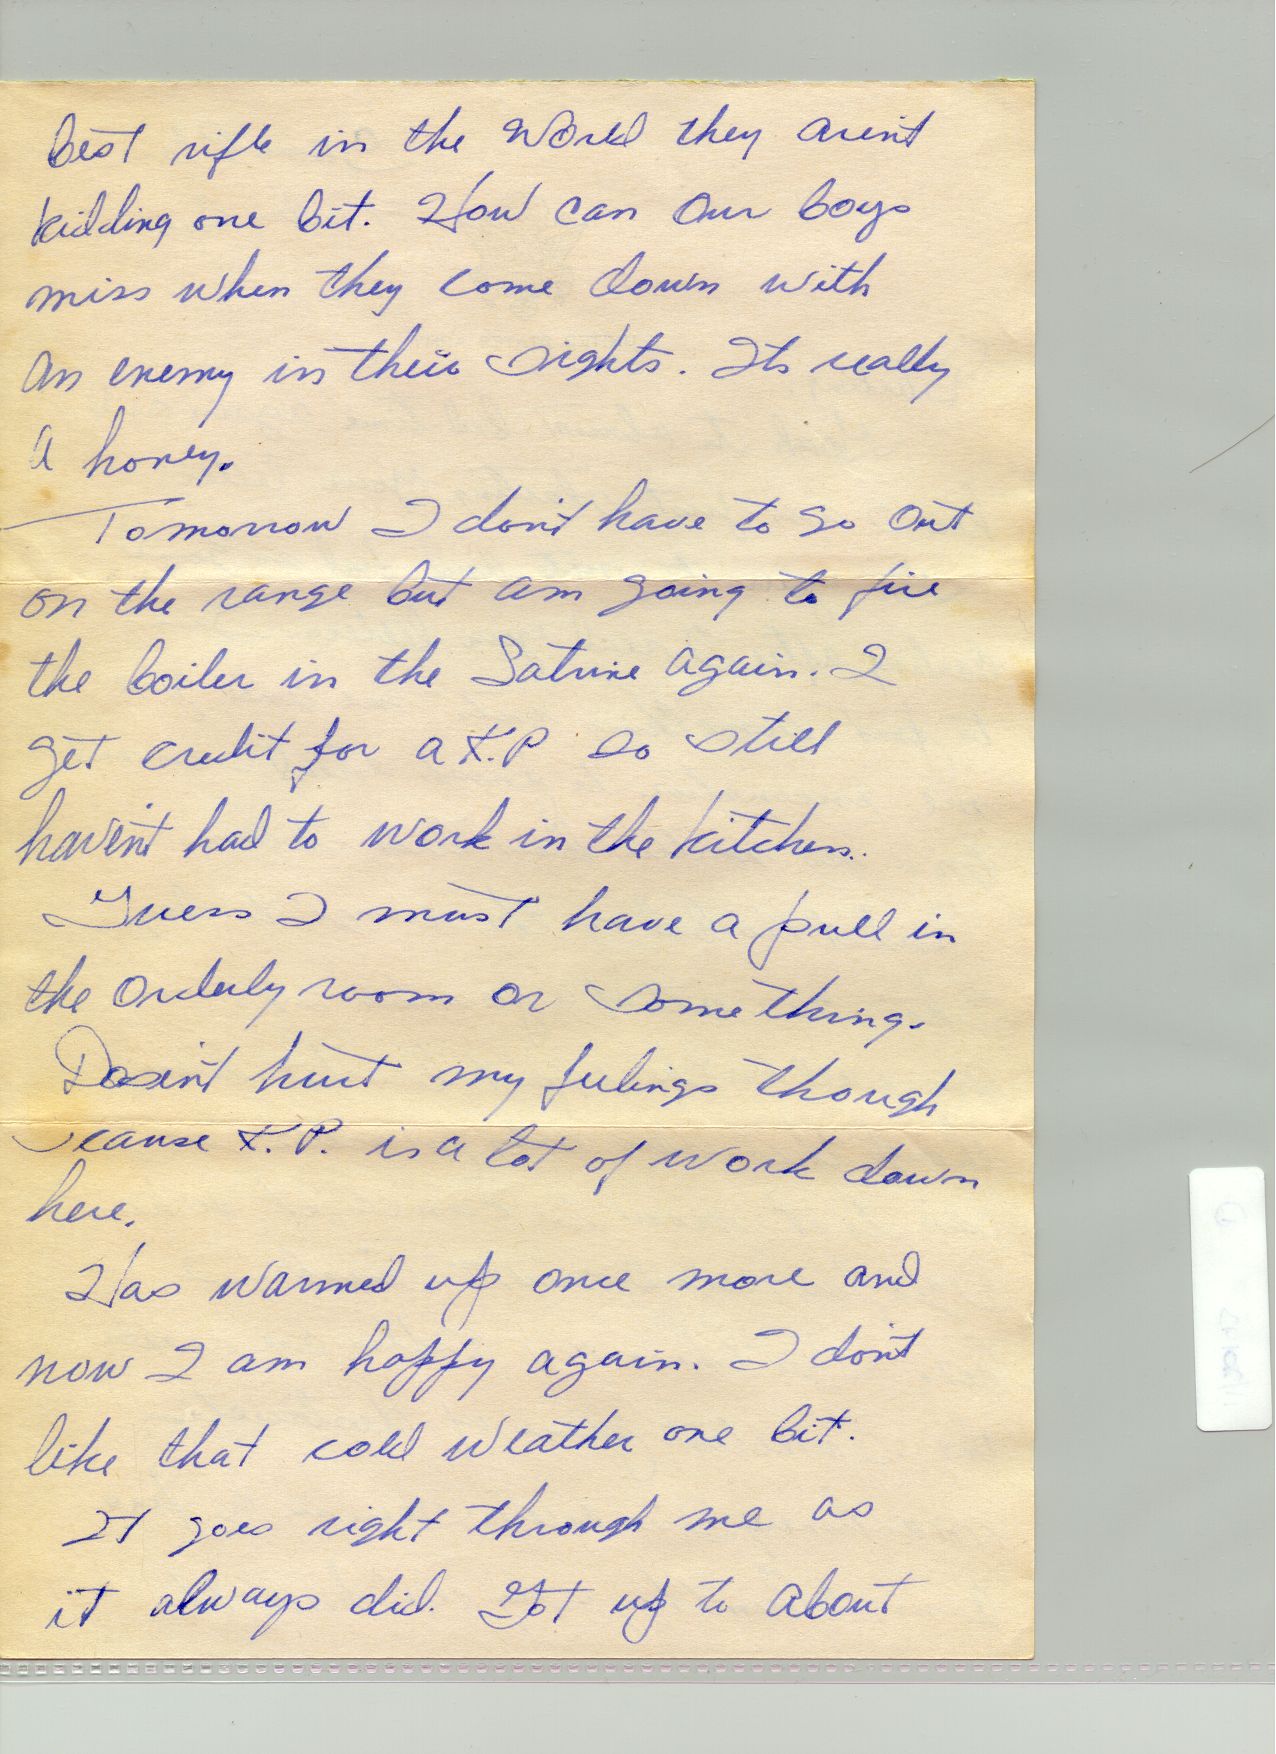 best rifle in the World they aren't
kidding one bit. How can our boys
miss when they come down with
an enemy in their sights. Its really
a honey.
Tomorrow I don't have to go out
on the range but am going to fire
the boiler in the Latrine again. I
get credit for a K.P so still
haven't had to work in the kitchen.
Guess I must have a pull in
the Orderly room or something.
Doesn't hurt my feelings though
cause K.P. is a lot of work down
here.
Has warmed up once more and
now I am happy again. I don't
like that cold weather one bit.
It goes right through me as
it always did. Got up to about